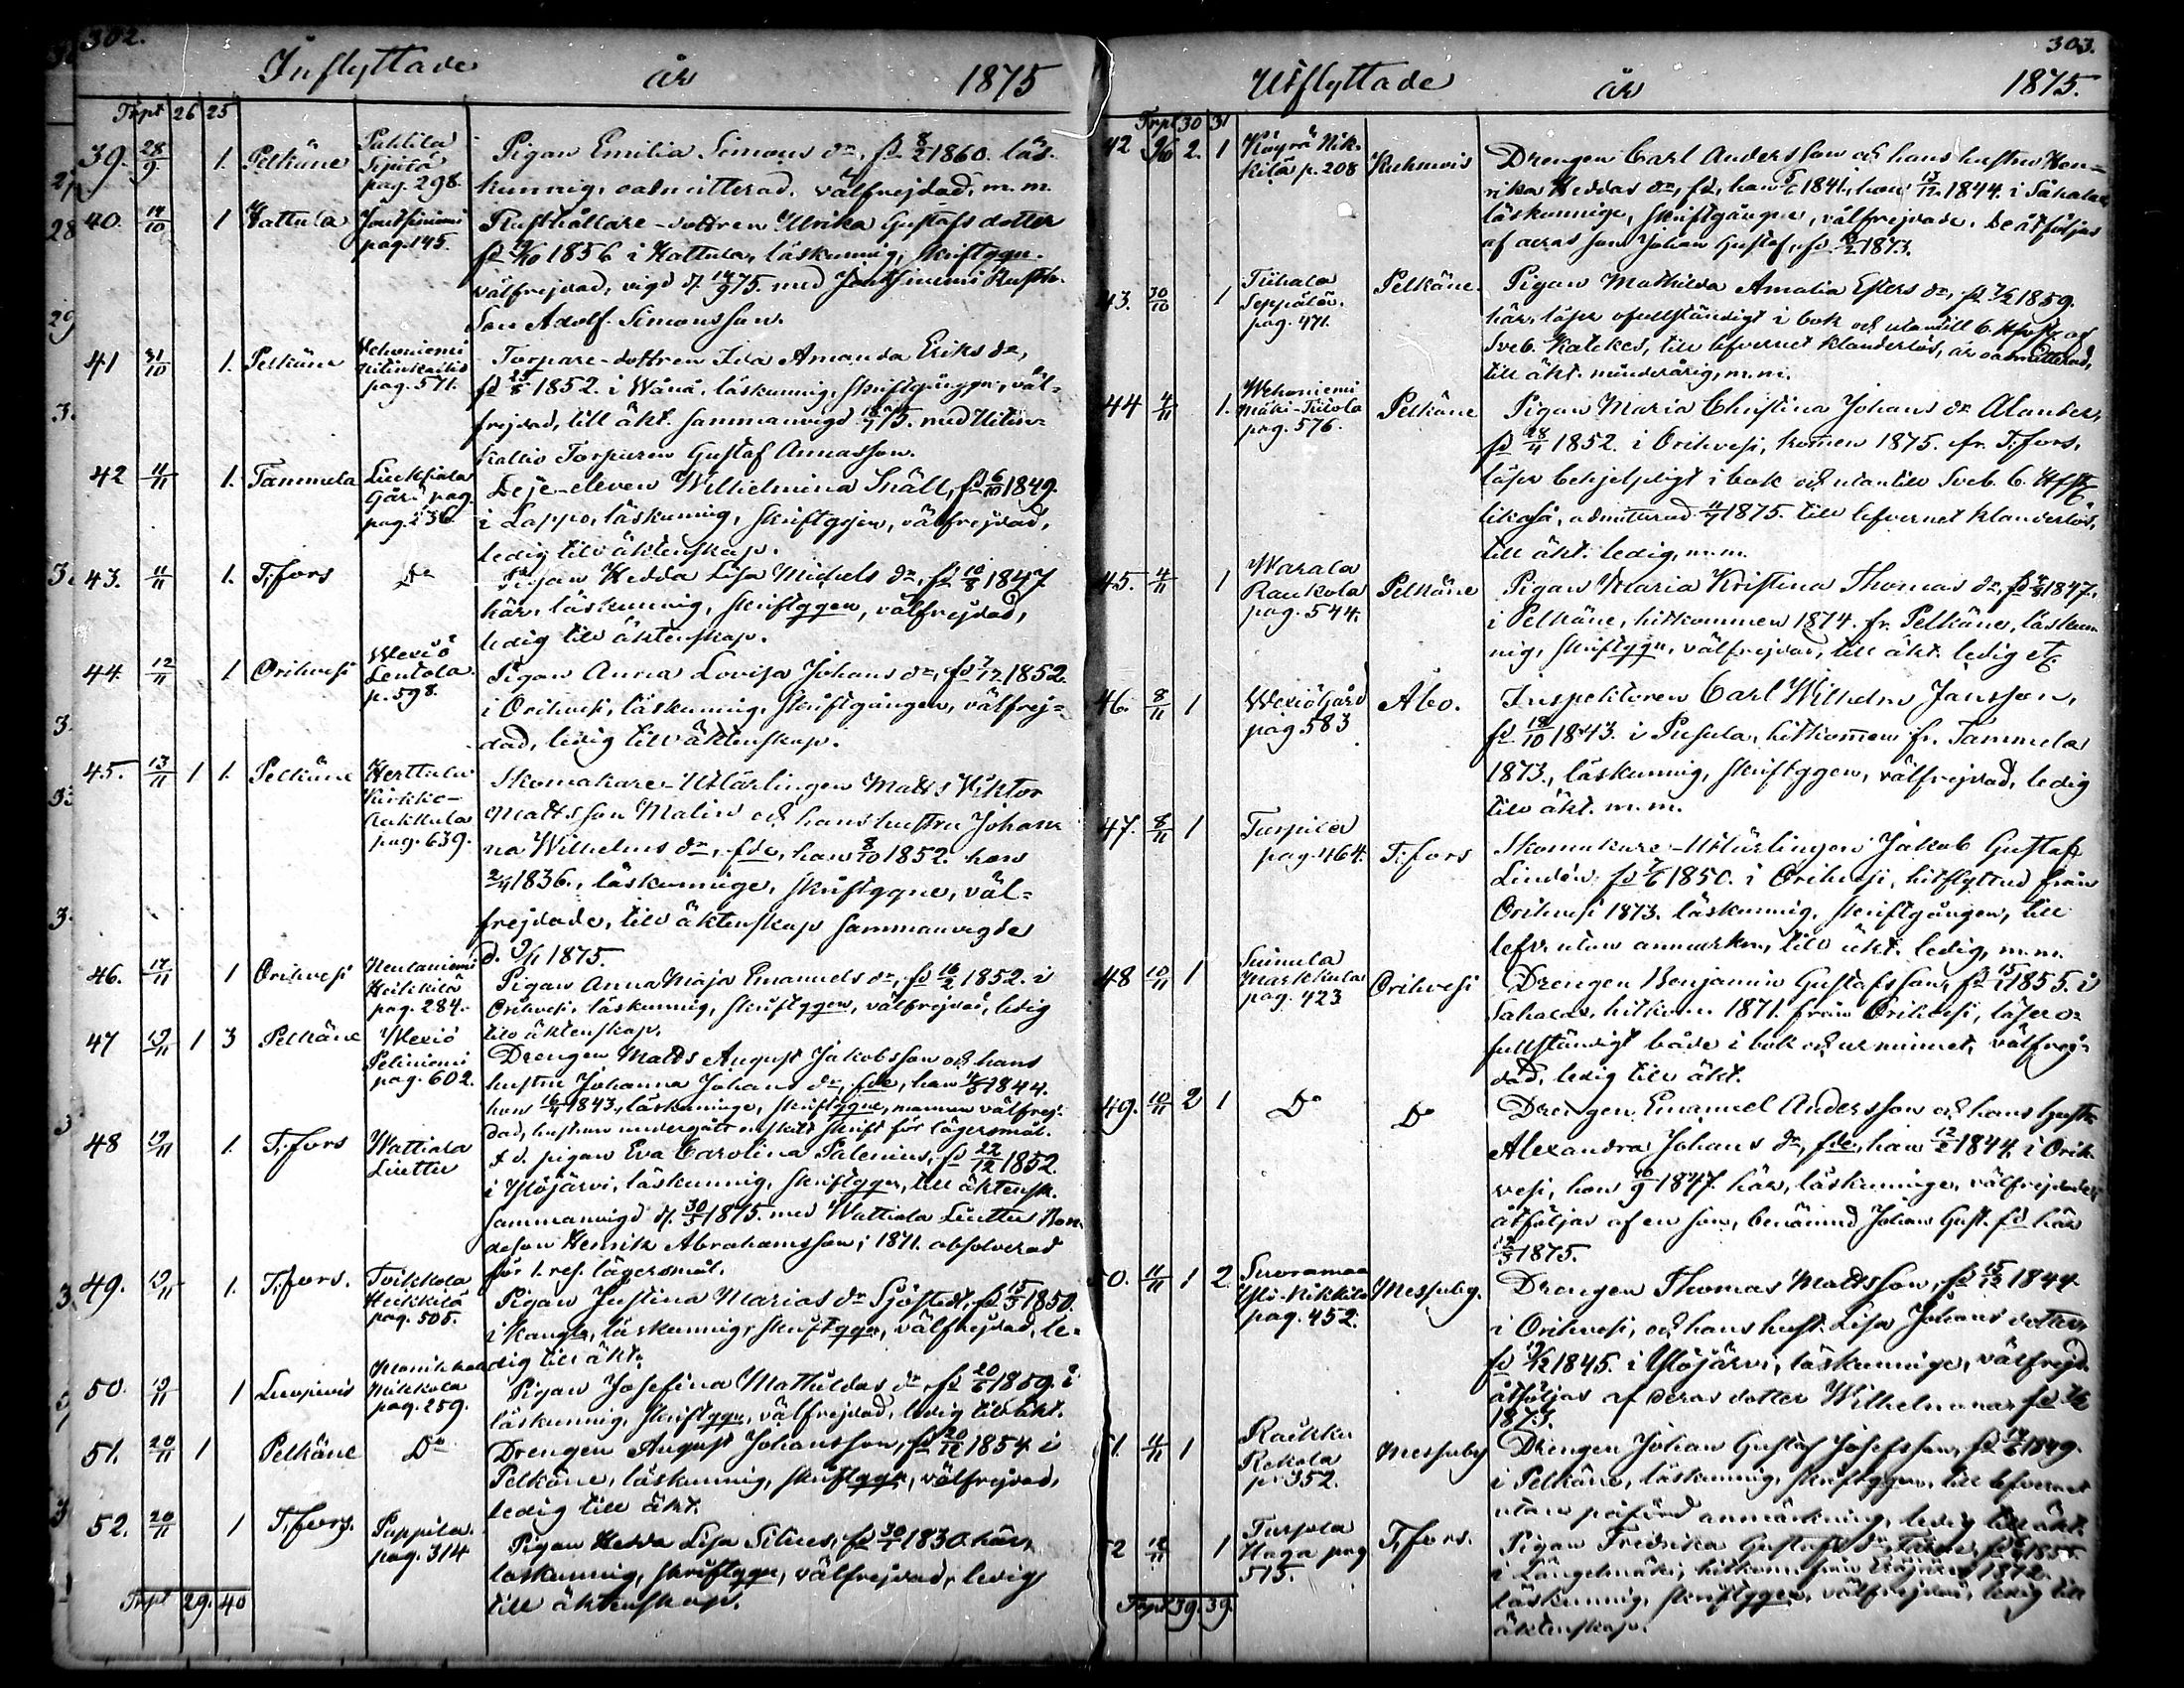 302.
Inflyttade år 1875
Trpt 26 25
39. 28/9 1. Pelkäne Pakkila Sipilä pag. 298. Pigan Emilia Simons dr, fd 8/2 1860. läs-
kunnig, oadmitterad, välfrejdad, m.m.
40. 14/10 1 Hattula Joutsiniemi pag. 145. Rusthållare-dottren Ulrika Gustafs dotter
fd 1856 i Hattula, läskunnig, skriftggn.
välfrejdad, vigd d. 14/9 75. med Joutsiniemi Rusth.
Son Adolf Simonsson.
41 31/10 1. Pelkäne Wehoniemi pag. 571. Torpare-dottren Ida Amanda Eriks dr,
fd 25/8 1852. i Wånå, läskunnig, skriftgången, väl-
frejdad, till äkt. sammanvigd 75. med
kallio Torparen Gustaf Annasson.
42 11/11 1. Tammela Liuksiala Gård pag. pag. 236. Deje-eleven Wilhelmina Snäll, fd 6/10 1849.
i Lappo, läskunnig, skriftggen, välfrejdad,
ledig till äktenskap.
43. 11/11 1. T:fors Do Pigan Hedda Lisa Michels dr, fd 10/8 1847
här, läskunnig, skriftggen, välfrejdad,
ledig till äktenskap.
44. 12/11 1 Orihvesi Wexiö Lentola p. 598. Pigan Anna Lovisa Johans dr, fd 7/12 1852.
i Orihvesi, läskunnig, skriftgången, välfrej-
dad, ledig till äktenskap.
45. 13/11 1 1. Pelkäne Herttula Kirkko- pag. 639. Skomakare-Utlärlingen Matts Viktor
Mattsson Malin och hans hustru Johan
na Wilhelms dr, fde, han 8/10 1852. hon
2/4 1836., läskunnige, skriftggne, väl-
frejdade, till äktenskap sammanvigde
d. 1875.
46. 17/11 1 Orihvesi Heikkilä pag. 284. Pigan Anna Maja Emanuels dr, fd 16/2 1852. i
Orihvesi, läskunnig, skriftggen, välfrejdad, ledig
till äktenskap.
47 19/11 1 3 Pelkäne Wexiö Peliniemi pag. 602. Drengen Matts August Jakobsson och hans
hustru Johanna Johans dr, fde, han 1844.
hon 16/4 1843, läskunnige, skriftggne, mannen välfrej-
dad, hustrun undergått enskilt skrift för lägersmål.
48 19/11 1. T:fors Wattiala Liuttu f.d. pigan Eva Carolina Salenius, fd 22/12 1852.
i Ylöjärvi, läskunnig, skriftggen, till äktensk.
sammanvigd d. 30/5 1875. med Wattiala Liuttu Bon
deson Henrik Abrahamsson; 1871. absolverad
för 1. res. lägersmål.
49. 19/11 1. T:fors. Toikkola Heikkilä pag. 505. Pigan Justina Marias dr Sjöstedt, fd 15/5 1850.
i Kangas., läskunnig, skriftggn, välfrejdad, le-
dig till äkt.
50. 19/11 1 Luopiois Nikkola pag. 259. Pigan Josefina Mathildas dr fd 20/6 1859. i
läskunnig, skriftggn, välfrejdad, ledig till äkt.
51. 20/11 1 Pelkäne Do Drengen August Johansson, fd 20/12 1854 i
Pelkäne, läskunnig, skriftggn, välfrejdad,
ledig till äkt.
52. 20/11 1 T:fors. Pappila. pag. 314 Pigan Hedda Lisa Silius, fd 30/1 1830. här,
läskunnig, skriftggn, välfrejdad, ledig
till äktenskap.
Trpt 29. 40
303.
Utflyttade år 1875.
Trpt 30 31
42 2. 1 Köyrä Nik- kilä p. 208 Kuhmois Drengen Carl Andersson och hans hustru Hen-
rika Heddas dr, fd, han 1841, hon 13/12 1844. i Sahalax
läskunnige, skriftgångne, välfrejdade. De åtföljas
af deras son Johan Gustaf, fd 1873.
43. 30/10 1 Tiihala Seppälä. pag. 471. Pelkäne. Pigan Mathilda Amalia Esters dr, fd 1859.
här, läser ofullständigt i bok och utantill 6. Hfst. af
Sveb. Katekes, till lefvernet klanderlös, är oadmitterad,
till äkt. minderårig, m.m.
44 4/11 1. Wehoniemi Mäki-Tiitola pag. 576. Pelkäne Pigan Maria Christina Johans dr Alander,
fd 28/4 1852. i Orihvesi, kommen 1875. fr. T:fors,
läser behjelpligt i bok och utantill Sveb. 6. Hfst.
likaså, admitterad 1875. till lefvernet klanderlös,
till äkt. ledig, m.m.
45. 4/11 1 Warala Raukola pag. 544. Pelkäne Pigan Maria Kristina Thomas dr, fd 1847.
i Pelkäne, hitkommen 1874. fr. Pelkäne, läskun
nig, skriftggn, välfrejdad, till äkt. ledig etc
46. 8/11 1 Wexiö Gård pag 583 Åbo. Inspektoren Carl Wilhelm Jansson,
fd 18/10 1843. i Pusula, hitkommen fr. Tammela
1873., läskunnig, skriftggen, välfrejdad, ledig
till äkt. m.m.
47. 8/11 1 Turpila pag. 464. T:fors Skomakare-Utlärlingen Jakob Gustaf
Lindén fd 1850. i Orihvesi, hitflyttad från
Orihvesi 1873. läskunnig, skriftgången, till
lefv. utan anmärkn, till äkt. ledig, m.m.
48 10/11 1 Suinula Markkula pag. 423 Orihvesi Drengen Benjamin Gustafsson, fd 1855. i
Sahalax, hitkom 1871. från Orihvesi, läser o-
fullständigt både i bok och ur minnet, välfrej-
dad, ledig till äkt.
49. 10/11 2 1 Do Do Drengen Emanuel Andersson och hans hustr
Alexandra Johans dr, fde, han 12/2 1844. i Orih
vesi, hon 10/9 1847. här, läskunnige, välfrejdade,
åtföljas af en son, benämnd Johan Gust. fd här
1875.
50. 11/11 1 2. Suoramaa Yli-Nikkilä pag. 452. Messuby. Drengen Thomas Mattsson, fd 15/12 1844
i Orihvesi, och hans hust. Lisa Johans dotter,
fd 1845. i Ylöjärvi, läskunnige, välfrejd.
åtföljas af deras dotter Wilhelmina, fd
1873.
51. 11/11 1 Raikku Rekola p. 352. Messuby Drengen Johan Gustaf Josefsson, fd 1849.
i Pelkäne, läskunnig, skriftggen, till lefvernet
utan påförd anmärkning, ledig till äkt.
52 12/11 1 Turpola Haga pag 515. T:fors. Pigan Fredrika Gustafs dr fd 1855.
i Längelmäki, hitkom från 1872.
läskunnig, skriftggen, välfrejdad, ledig till
äktenskap.
Trpt 39. 39.